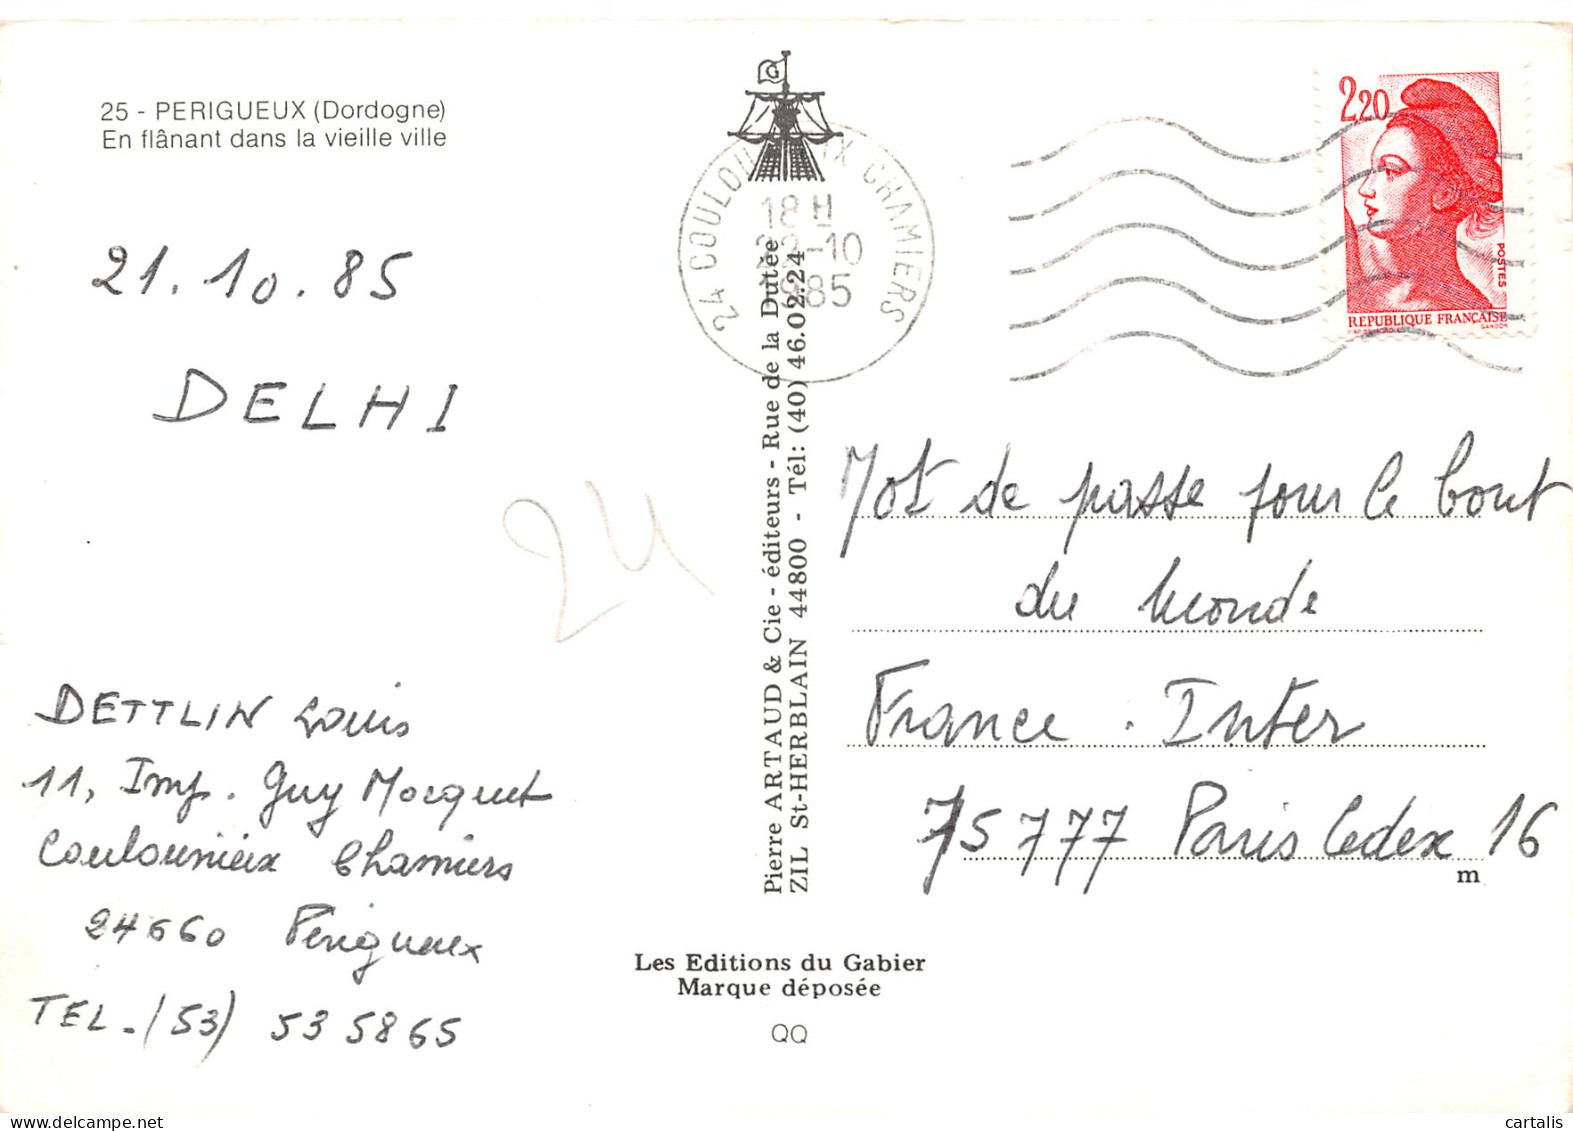 25 - PERIGUEUX (Dordogne)
En flânant dans la vieille ville
21.10.85
DELHI
24
DETTLIN Louis
11, Imp. Guy Mocquet
Coulounieix Chamiers
24660 Périgueux
TEL. (53) 535865
Pierre ARTAUD & Cie - éditeurs - Rue de la Dutée
ZIL St-HERBLAIN 44800 - Tél: (40) 46.02.24
Les Editions du Gabier
Marque déposée
QQ
G
24 COULOU IX CHAMIERS
18 H
-10
1985
2,20
POSTES
REPUBLIQUE FRANÇAISE
GANDON
Mot de passe pour le bout
du Monde
France. Inter
75777 Paris Cedex 16
m
cartalis
www.delcampe.net